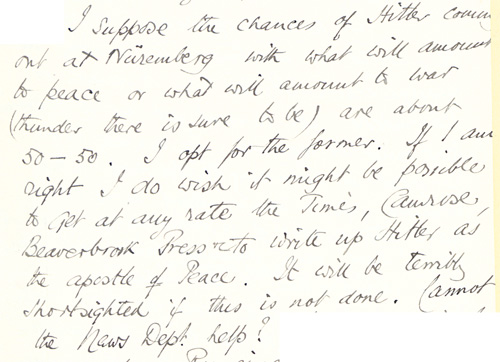 I suppose the chances of Hitler coming
out at Nüremberg with what will amount
to peace or what will amount to war
(thunder there is sure to be) are about
50 – 50. I opt for the former. If I am
right I do wish it might be possible
to get at any rate the Times, Camrose,
Beaverbrook Press etc to write up Hitler as
the apostle of Peace. It will be terribly
shortsighted if this is not done. Cannot
the News Dept. help?